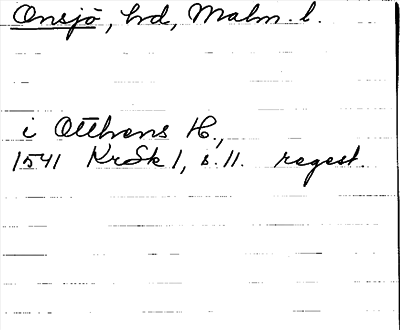 Onsjö, hd, Malm. l.
i Otthens H.,
1541 KrSk 1, s. 11. regest.